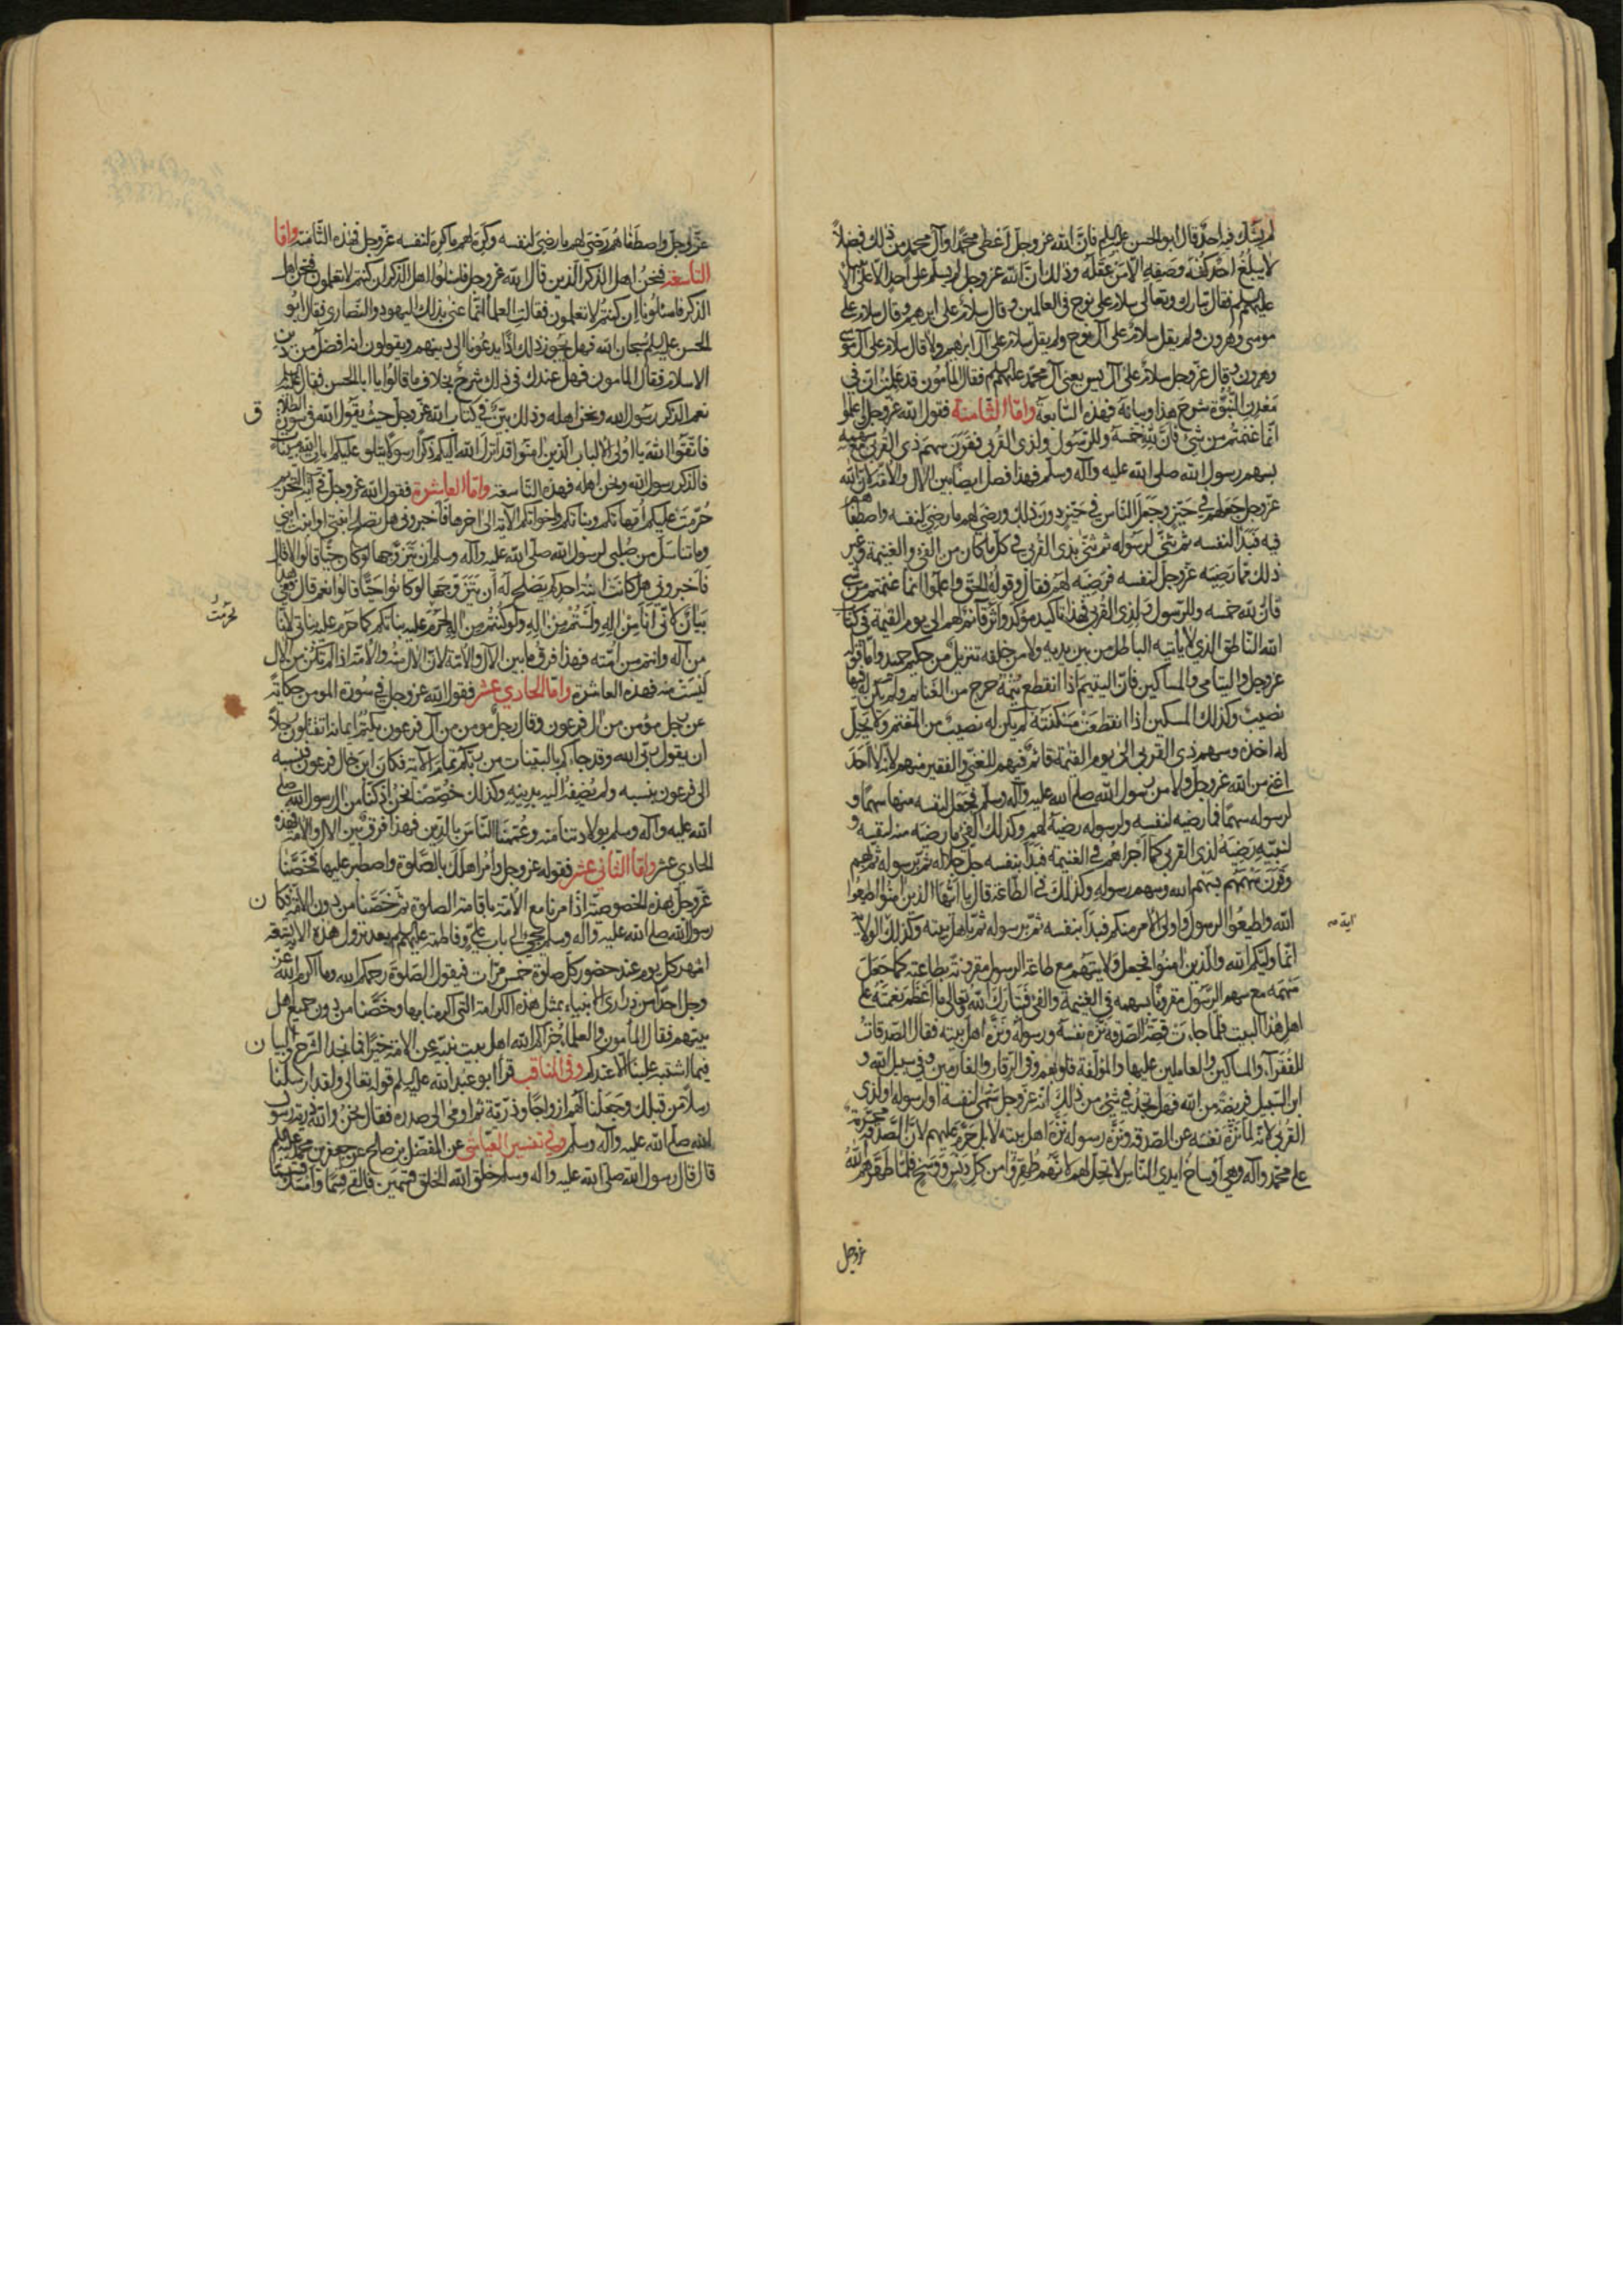 لم يشك فيه احد قال ابو الحسن عليه السلم فان الله عز وجل اعطى محمدا وآل محمد من ذلك فضلا
لا يبلغ احد كنه وصفه الا من عقله وذلك ان الله عز وجل لم يسلم على احد الا على الانبياء
عليهم السلم فقال تبارك وتعالى سلام على نوح في العالمين وقال سلام على ابرهيم وقال سلام على
موسى وهرون ولم يقل سلام على آل نوح ولم يقل سلام على آل ابرهيم ولا قال سلام على آل موسى
وهرون وقال عز وجل سلام على آل يس يعني آل محمد عليهم السلم فقال المأمون قد علمت ان في
معدن النبوة شرح هذا وبيانه فهذه السابعة واما الثامنة فقول الله عز وجل واعلموا
انما غنمتم من شئ فان لله خمسه وللرسول ولذي القربى فقرن سهم ذي القربى مع سهمه
بسهم رسول الله صلى الله عليه وآله وسلم فهذا فصل ايضا بين الآل والامة لان الله
عز وجل جعلهم في حيز وجعل الناس في حيز دون ذلك ورضي لهم ما رضي لنفسه واصطفاهم
فيه فبدأ لنفسه ثم ثنى لرسوله ثم ثنى بذي القربى في كل ما كان من الفئ والغنيمة وغير
ذلك مما رضيه عز وجل لنفسه فرضيه لهم فقال وقوله الحق واعلموا انما غنمتم من شئ
فان لله خمسه وللرسول ولذي القربى فهذا تاكيد مؤكد واثر قائم لهم الى يوم القيمة في كتاب
الله الناطق الذي لا يأتيه الباطل من بين يديه ولا من خلفه تنزيل من حكيم حميد واما قوله
عز وجل واليتامى والمساكين فان اليتيم اذا انقطع يتمه خرج من الغنايم ولم يكن له فيها
نصيب وكذلك المسكين اذا انقطعت مسكنته لم يكن له نصيب من المغنم ولا يحل
له اخذه وسهم ذي القربى الى يوم القيمة قائم فيهم للغني والفقير منهم لانه لا احد
اغنى من الله عز وجل ولا من رسول الله صلى الله عليه وآله وسلم فجعل لنفسه منها سهما و
لرسوله سهما فما رضيه لنفسه ولرسوله رضيه لهم وكذلك الفئ ما رضيه منه لنفسه و
لنبيه رضيه لذي القربى كما اجراهم في الغنيمة فبدأ بنفسه جل جلاله ثم برسوله ثم بهم
وقرن سهمهم بسهم الله وسهم رسوله وكذلك في الطاعة قال يا ايها الذين امنوا اطيعوا
الله واطيعوا الرسول واولي الامر منكم فبدأ بنفسه ثم برسوله ثم باهل بيته وكذلك الولاية
انما وليكم الله والذين امنوا فجعل ولايتهم مع طاعة الرسول مقرونة بطاعته كما جعل
سهمه مع سهم الرسول مقرونا بسهمه في الغنيمة والفئ فتبارك الله وتعالى ما اعظم نعمته على
اهل هذا البيت فلما جاءت قصة الصدقة نزه نفسه ورسوله ونزه اهل بيته فقال الصدقات
للفقرآء والمساكين والعاملين عليها والمؤلفة قلوبهم وفي الرقاب والغارمين وفي سبيل الله و
ابن السبيل فريضة من الله فهل تجد في شئ من ذلك انه عز وجل سمى لنفسه او لرسوله او لذي
القربى لانه لما نزه نفسه عن الصدقة ونزه رسوله نزه اهل بيته لا بل حرم عليهم لان الصدقة محرمة
على محمد وآله وهي اوساخ ايدي الناس لا تحل لهم لانهم طهروا من كل دنس ووسخ فلما طهرهم الله
عز وجل
آية صه
عز وجل واصطفاهم رضي لهم ما رضي لنفسه وكره لهم ما كره لنفسه عز وجل فهذه الثامنة واما
التاسعة فنحن اهل الذكر الذين قال الله عز وجل فاسئلوا اهل الذكر ان كنتم لا تعلمون فنحن اهل
الذكر فاسئلونا ان كنتم لا تعلمون فقالت العلمآ انما عنى بذلك اليهود والنصارى فقال ابو
الحسن عليه السلم سبحان الله فهل يجوز ذلك اذا يدعونا الى دينهم ويقولون انه افضل من دين
الاسلام فقال المأمون فهل عندك في ذلك شرح بخلاف ما قالوا يا ابا الحسن فقال عليه السلم
نعم الذكر رسول الله ونحن اهله وذلك بين في كتاب الله عز وجل حيث يقول الله في سورة الطلاق
فاتقوا الله يا اولي الالباب الذين امنوا قد انزل الله اليكم ذكرا رسولا يتلو عليكم ايات الله مبينات
فالذكر رسول الله ونحن اهله فهذه التاسعة واما العاشرة فقول الله عز وجل في آية التحريم
حرمت عليكم امهاتكم وبناتكم واخواتكم الآية الى اخرها فاخبروني هل تصلح ابنتي او ابنة ابني
وما تناسل من صلبي لرسول الله صلى الله عليه وآله وسلم ان يتزوجها لو كان حيا قالوا لا قال
فاخبروني هل كانت ابنة احدكم يصلح له ان يتزوجها لو كان حيا قالوا نعم قال ففي هذا
بيان لاني انا من اله ولستم من اله ولو كنتم من اله لحرم عليه بناتكم كما حرم عليه بناتي لانا
من آله وانتم من امته فهذا فرق ما بين الآل والامة لان الآل منه والامة اذا لم تكن من الآل
ليست منه فهذه العاشرة واما الحادي عشر فقول الله عز وجل في سورة المومن حكاية
عن رجل مؤمن من آل فرعون وقال رجل مومن من آل فرعون يكتم ايمانه اتقتلون رجلا
ان يقول ربي الله وقد جاءكم بالبينات من ربكم تمام الآية فكان ابن خال فرعون فنسبه
الى فرعون بنسبه ولم يضفه اليه بدينه وكذلك خصصنا نحن اذ كنا من آل رسول الله صلى
الله عليه وآله وسلم بولادتنا منه وعممنا الناس بالدين فهذا فرق بين الآل والامة فهذه
الحادي عشر واما الثاني عشر فقوله عز وجل وأمر اهلك بالصلوة واصطبر عليها فخصنا
عز وجل بهذه الخصوصية اذ امرنا مع الامة باقامة الصلوة ثم خصنا من دون الامة فكان
رسول الله صلى الله عليه وآله وسلم يجئ الى باب علي وفاطمة عليهم السلم بعد نزول هذه الاية تسعة
اشهر كل يوم عند حضور كل صلوة خمس مرات فيقول الصلوة رحمكم الله وما اكرم الله عز
وجل احدا من ذراري الانبياء بمثل هذه الكرامة التي اكرمنا بها وخصنا من دون جميع اهل
بيتهم فقال المأمون والعلمآء جزاكم الله اهل بيت نبيه عن الامة خيرا فما نجد الشرح والبيان
فيما اشتبه علينا الا عندكم وفي المناقب قرأ ابو عبد الله عليه السلم قوله تعالى ولقد ارسلنا
رسلا من قبلك وجعلنا لهم ازواجا وذرية ثم اومى الى صدره فقال نحن والله ذرية رسول
الله صلى الله عليه وآله وسلم وفي تفسير العياشي عن المفضل بن صالح عن جعفر بن محمد عليه السلم
قال قال رسول الله صلى الله عليه وآله وسلم خلق الله الخلق قسمين فالقى قسما وامسك قسما
ق
لحرمت